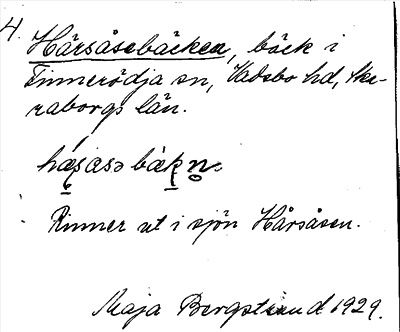 4.
Hårsåsebäcken, bäck i
Finnerödja sn, Vadsbo hd, Ska-
raborgs län.
Rinner ut i sjön Hårsåsen.
Maja Bergstrand 1929.